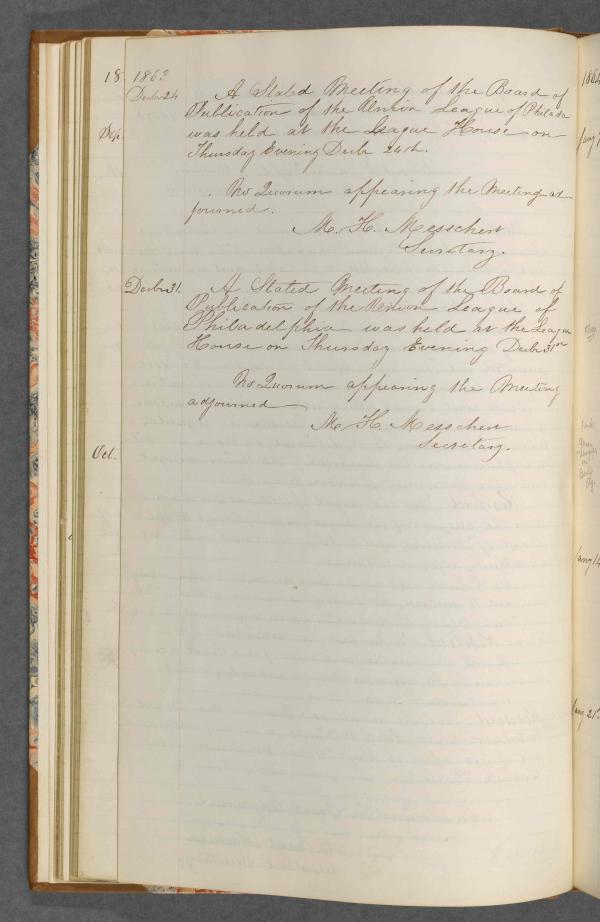 18 1863
Decbr 24
A Stated Meeting of the Board of
Publication of the Union League of Philada
was held at the League House on
Thursday Evening Decbr 24th.
No Quorum appearing the Meeting ad
journed.
M. H. Messchert
Secretary.
Decbr 31.
A Stated Meeting of the Board of
Publication of the Union League of
Philadelphia was held at the League
House on Thursday Evening Decbr 31st
No Quorum appearing the Meeting
adjourned
M. H. Messchert
Secretary.
Sep.
Oct.
1864
Jany 7
Jany 14
Jany 21st